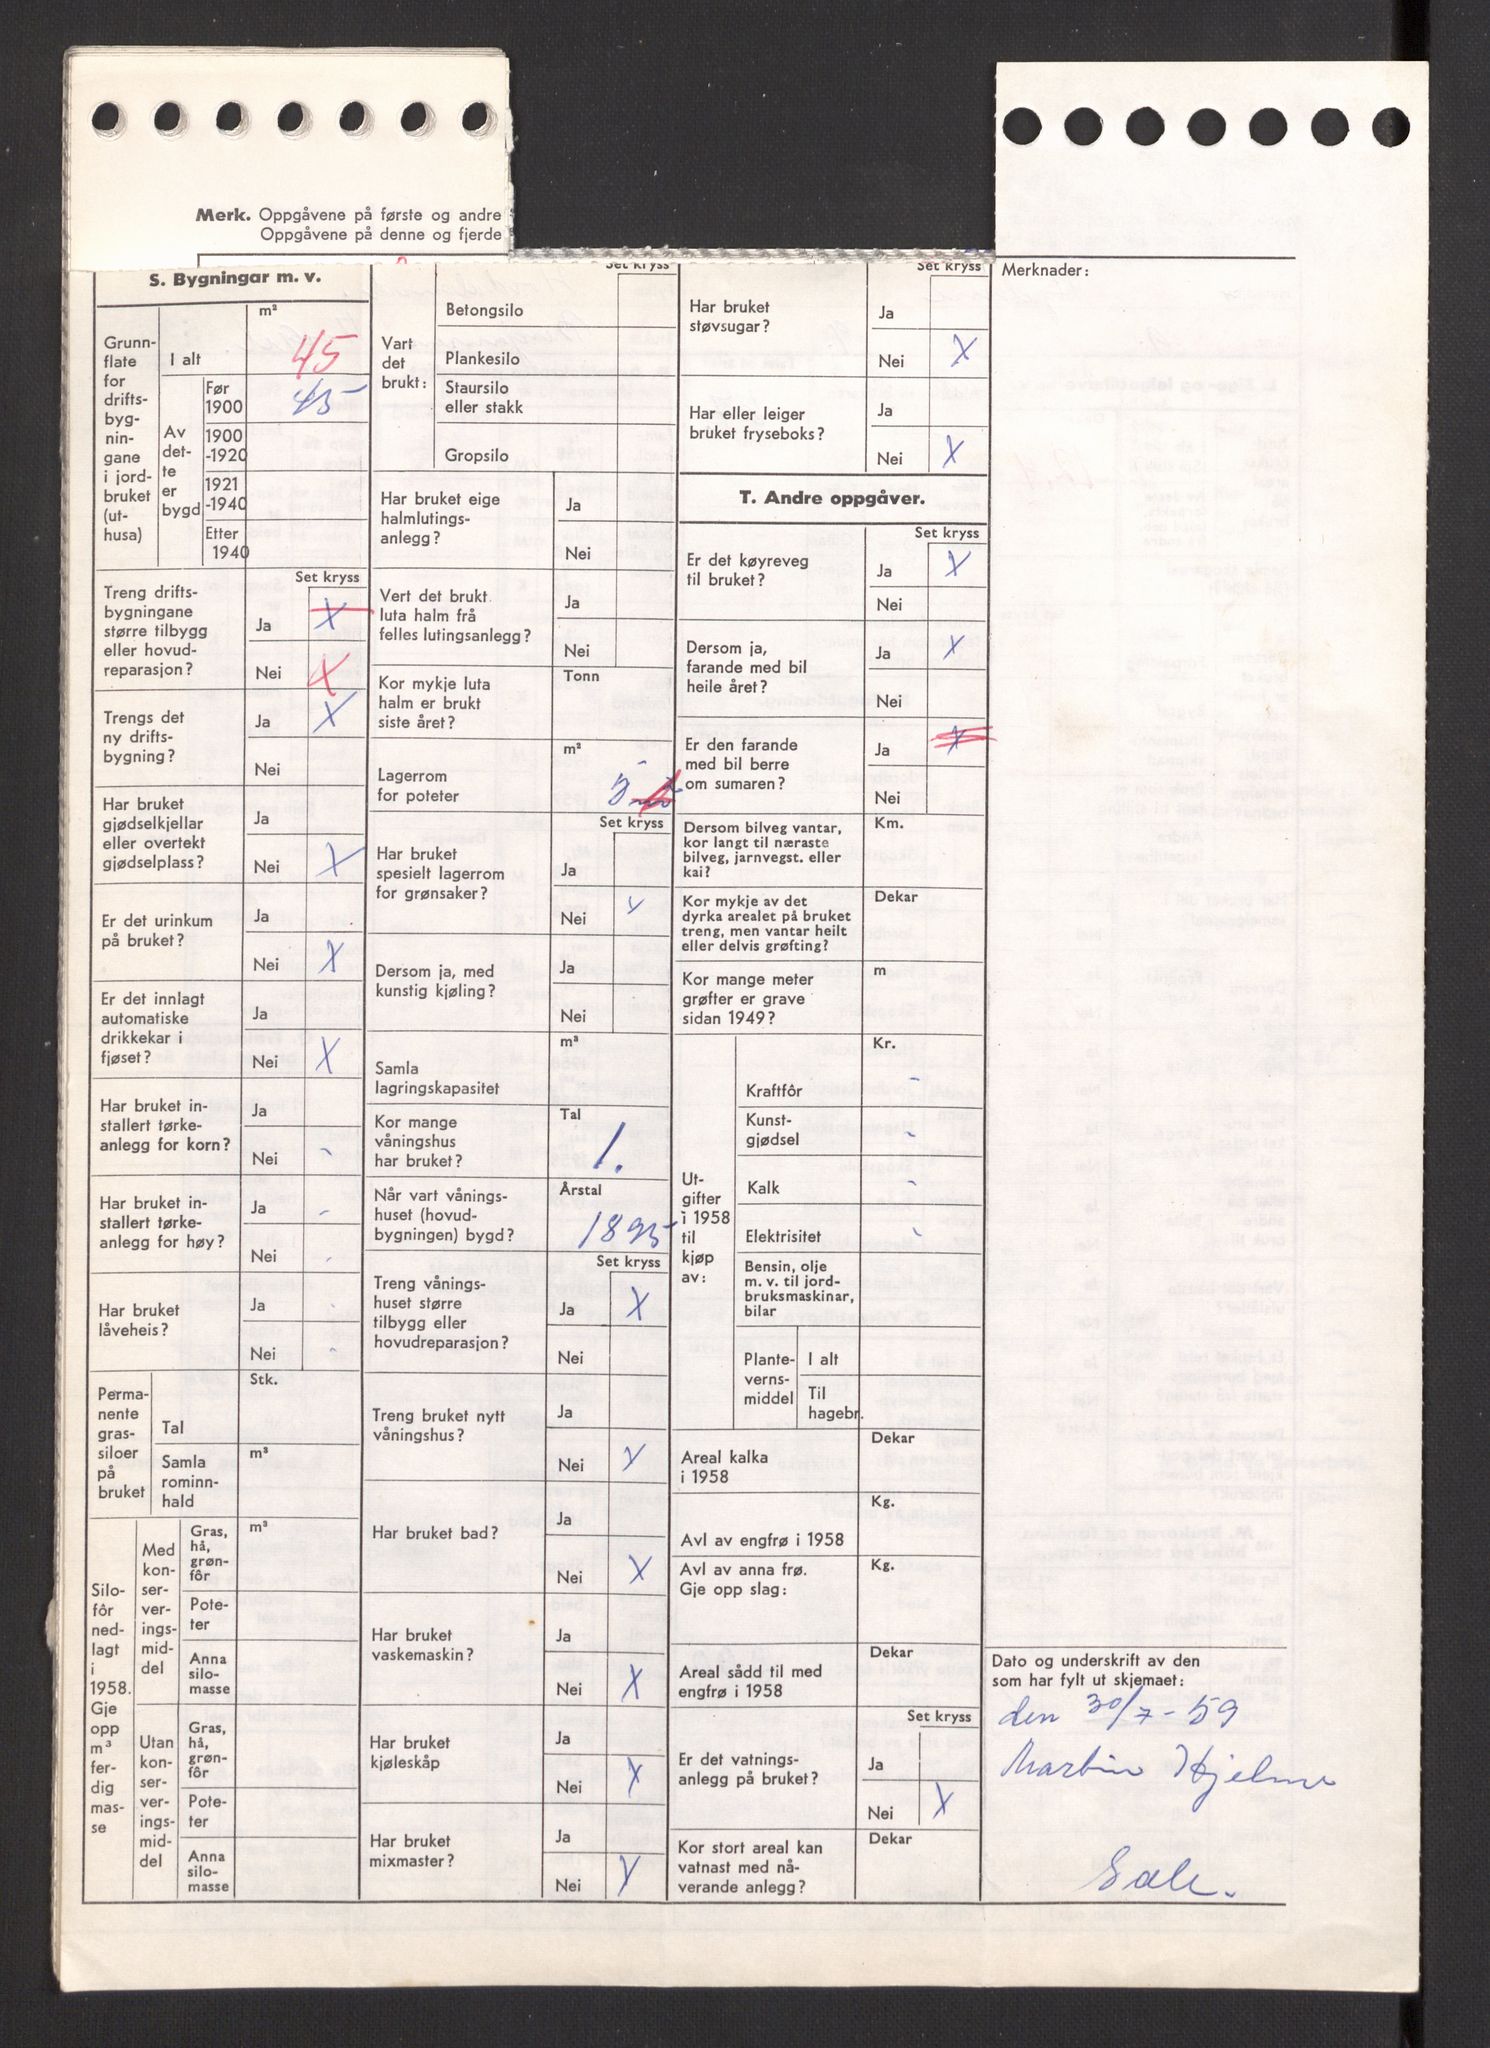 Merk. Oppgåvene på første og andre
Oppgåvene på denne og fjerde
S. Bygningar m. v.
Grunn-
flate
for
drifts-
byg-
nin-
gane
i jord-
bruket
(ut-
husa)
m²
I alt
45
Av
det-
te
er
bygd
Før
1900
45
1900
-1920
1921
-1940
Etter
1940
Set kryss
Treng drifts-
bygningane
større tilbygg
eller hovud-
reparasjon?
Ja X
Nei X
Trengs det
ny drifts-
bygning?
Ja X
Nei
Har bruket
gjødselkjellar
eller overtekt
gjødselplass?
Ja
Nei X
Er det urinkum
på bruket?
Ja
Nei X
Er det innlagt
automatiske
drikkekar i
fjøset?
Ja
Nei X
Har bruket in-
stallert tørke-
anlegg for korn?
Ja
Nei -
Har bruket in-
stallert tørke-
anlegg for høy?
Ja -
Nei -
Har bruket
låveheis?
Ja -
Nei -
Perma-
nente
gras-
siloer
på
bruket
Stk.
Tal
Samla
rominn-
hald
m³
Silo-
fôr
ned-
lagt
i
1958.
Gje
opp
m³
fer-
dig
mas-
se
Med
kon-
ser-
ver-
ings-
mid-
del
Gras,
hå,
grøn-
fôr
m³
Pote-
ter
Anna
silo-
masse
Utan
kon-
ser-
ver-
ings-
mid-
del
Gras,
hå,
grøn-
fôr
Pote-
ter
Anna
silo-
masse
Set kryss
Vart
det
brukt:
Betongsilo
Plankesilo
Staursilo
eller stakk
Gropsilo
Har bruket eige
halmlutings-
anlegg?
Ja
Nei
Vert det brukt
luta halm frå
felles lutingsanlegg?
Ja
Nei
Kor mykje luta
halm er brukt
siste året?
Tonn
Lagerrom
for poteter
m²
5
Set kryss
Har bruket
spesielt lagerrom
for grønsaker?
Ja
Nei X
Dersom ja, med
kunstig kjøling?
Ja
Nei
Samla
lagringskapasitet
m³
Kor mange
våningshus
har bruket?
Tal
1.
Når vart vånings-
huset (hovud-
bygningen) bygd?
Årstal
1895
Set kryss
Treng vånings-
huset større
tilbygg eller
hovudreparasjon?
Ja X
Nei
Treng bruket nytt
våningshus?
Ja
Nei X
Har bruket bad?
Ja
Nei X
Har bruket
vaskemaskin?
Ja
Nei X
Har bruket
kjøleskåp
Ja
Nei X
Har bruket
mixmaster?
Ja
Nei X
Set kryss
Har bruket
støvsugar?
Ja
Nei X
Har eller leiger
bruket fryseboks?
Ja
Nei X
T. Andre oppgåver.
Set kryss
Er det køyreveg
til bruket?
Ja X
Nei
Dersom ja,
farande med bil
heile året?
Ja X
Nei
Er den farande
med bil berre
om sumaren?
Ja X
Nei
Dersom bilveg vantar,
kor langt til næraste
bilveg, jarnvegst. eller
kai?
Km.
Kor mykje av det
dyrka arealet på bruket
treng, men vantar heilt
eller delvis grøfting?
Dekar
Kor mange meter
grøfter er grave
sidan 1949?
m
Ut-
gifter
i 1958
til
kjøp
av:
Kr.
Kraftfôr -
Kunst-
gjødsel -
Kalk -
Elektrisitet -
Bensin, olje
m. v. til jord-
bruksmaskinar,
bilar
Plante-
verns-
middel
I alt
Til
hagebr.
Areal kalka
i 1958
Dekar
Avl av engfrø i 1958
Kg.
Avl av anna frø.
Gje opp slag:
Kg.
Areal sådd til med
engfrø i 1958
Dekar
Set kryss
Er det vatnings-
anlegg på bruket?
Ja
Nei X
Kor stort areal kan
vatnast med nå-
verande anlegg?
Dekar
Merknader:
Dato og underskrift av den
som har fylt ut skjemaet:
den 30/7-59
Martin Hjelme